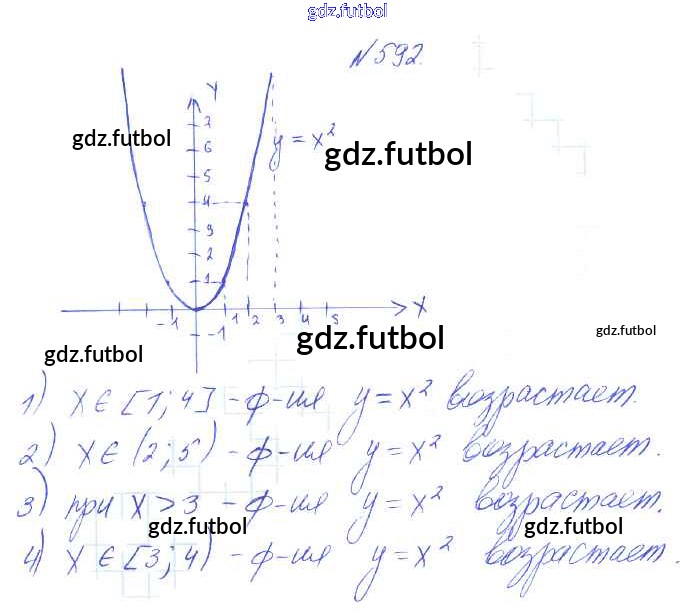 gdz.futbol
N 592.
y
7
gdz.futbol
y = x²
6
gdz.futbol
5
4
3
2
1
-1 1 2 3 4 5 x
-1
gdz.futbol
gdz.futbol
gdz.futbol
1) x ∈ [1; 4] - ф-ия y = x² возрастает.
2) x ∈ (2; 5) - ф-ия y = x² возрастает.
3) при x > 3 - ф-ия y = x² возрастает.
gdz.futbol gdz.futbol
4) x ∈ [3; 4) - ф-ия y = x² возрастает.